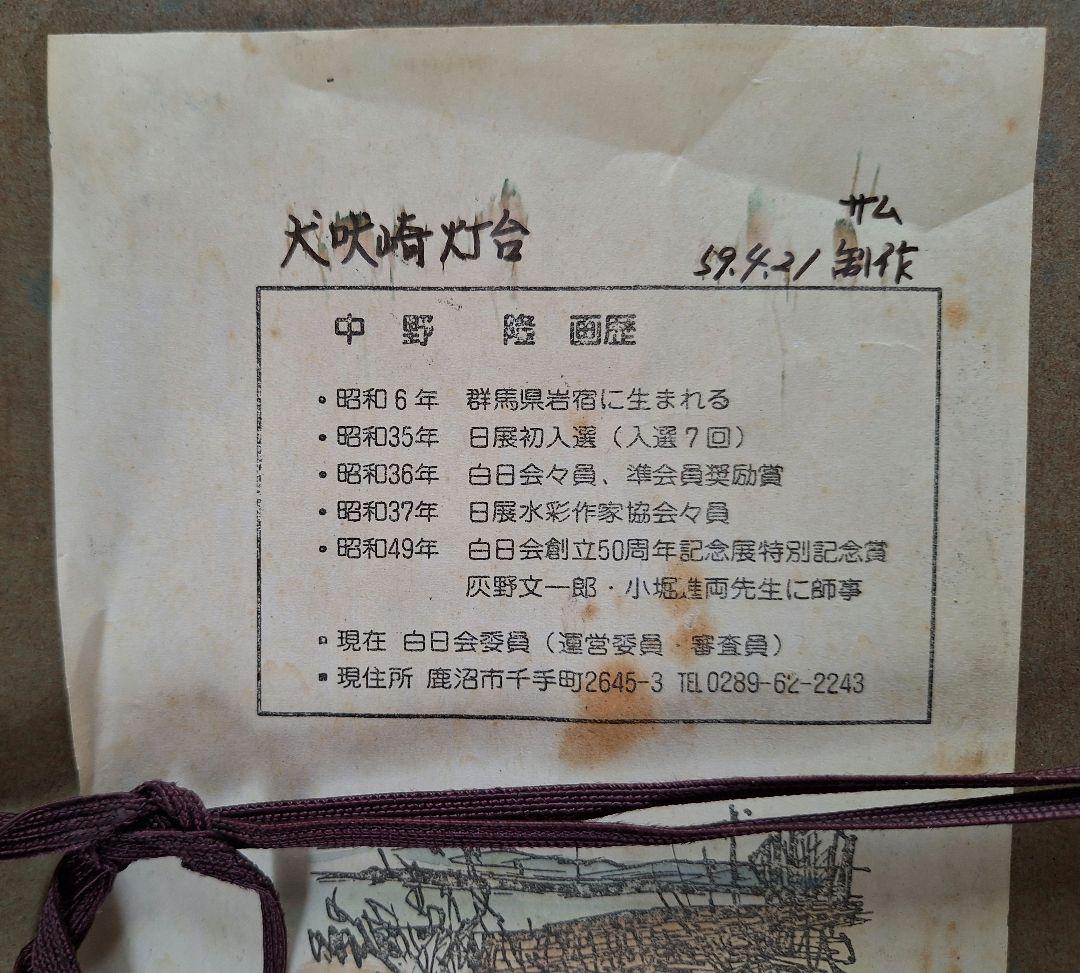 犬吠崎灯台
サム
59.4.21 制作
中野 隆 画歴
・昭和6年 群馬県岩宿に生まれる
・昭和35年 日展初入選（入選7回）
・昭和36年 白日会々員、準会員奨励賞
・昭和37年 日展水彩作家協会々員
・昭和49年 白日会創立50周年記念展特別記念賞
灰野文一郎・小堀進両先生に師事
▪現在 白日会委員（運営委員・審査員）
▪現住所 鹿沼市千手町2645-3 TEL0289-62-2243